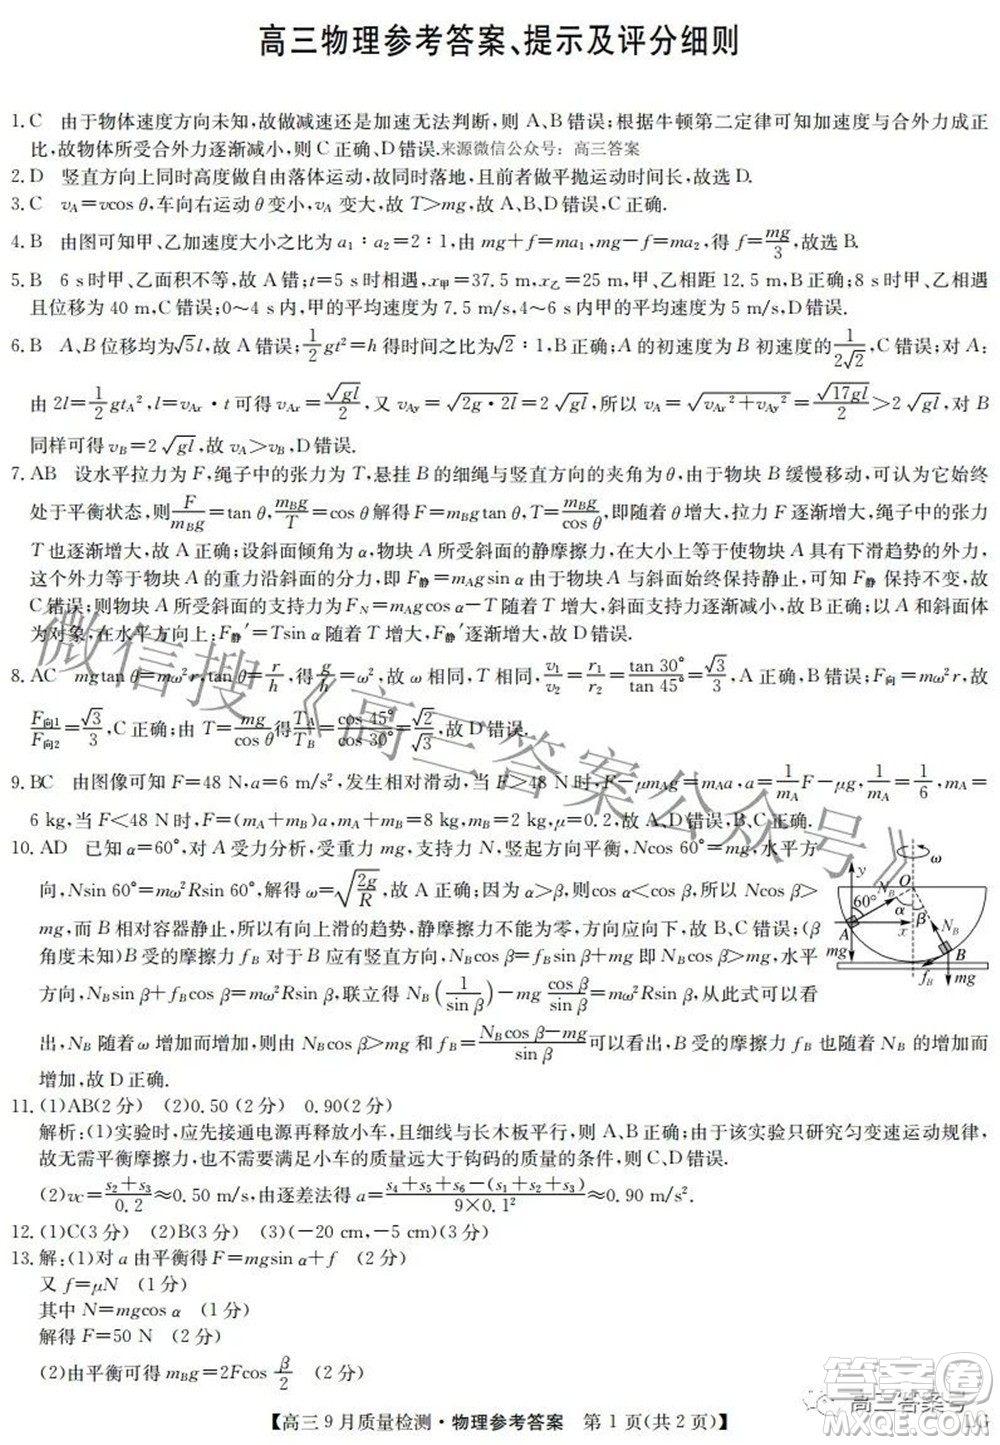 高三物理参考答案、提示及评分细则
1. C　由于物体速度方向未知,故做减速还是加速无法判断,则 A、B 错误;根据牛顿第二定律可知加速度与合外力成正
比,故物体所受合外力逐渐减小,则 C 正确、D 错误.来源微信公众号：高三答案
2. D　竖直方向上同时同高度做自由落体运动,故同时落地,且前者做平抛运动时间长,故选 D.
3. C　v_A=vcos θ,车向右运动 θ 变小,v_A 变大,故 T>mg,故 A、B、D 错误,C 正确.
4. B　由图可知甲、乙加速度大小之比为 a₁∶a₂=2∶1,由 mg+f=ma₁,mg−f=ma₂,得 f=mg/3,故选 B.
5. B　6 s 时甲、乙面积不等,故 A 错;t=5 s 时相遇,x甲=37.5 m,x乙=25 m,甲、乙相距 12.5 m,B 正确;8 s 时甲、乙共线
且位移为 40 m,C 错误;0~4 s 内,甲的平均速度为 7.5 m/s,4~6 s 内甲的平均速度为 5 m/s,D 错误.
6. B　A、B 位移均为√5l,故 A 错误;1/2gt²=h 得时间之比为√2∶1,B 正确;A 的初速度为 B 初速度的1/(2√2),C 错误;对 A:
由 2l=1/2gt_A²,l=v_Ax·t 可得 v_Ax=√(gl)/2,又 v_Ay=√(2g·2l)=2√(gl),所以 v_A=√(v_Ax²+v_Ay²)=√(17gl)/2>2√(gl),对 B
同样可得 v_B=2√(gl),故 v_A>v_B,D 错误.
7. AB　设水平拉力为 F,绳子中的张力为 T,悬挂 B 的细绳与竖直方向的夹角为 θ,由于物块 B 缓慢移动,可以认为它始终
处于平衡状态,则F/(m_Bg)=tan θ,m_Bg/T=cos θ 解得 F=m_Bgtan θ,T=m_Bg/cos θ,即随着 θ 增大,拉力 F 逐渐增大,绳子中的张力
T 也逐渐增大,故 A 正确;设斜面倾角为 α,物块 A 所受斜面的静摩擦力,在大小上等于使物块 A 具有下滑趋势的外力,
这个外力等于物块 A 的重力沿斜面的分力,即 F静=m_Agsin α 由于物块 A 始终保持静止,可知 F静 保持不变,故
C 错误;则物块 A 所受斜面的支持力为 F_N=m_Agcos α−T 随着 T 增大,F_N 逐渐减小,故 B 正确;以物块 A 和斜面体
为对象,在水平方向上:F静′=Tsin α 随着 T 增大,F静′逐渐增大,故 D 错误.
8. AC　mgtan θ=mω²r,tan θ=r/h,得g/h=ω²,故 ω 相同,T 相同,v₁/v₂=r₁/r₂=tan 30°/tan 45°=√3/3,故 A 正确,B 错误;F向=mω²r,故
F向1/F向2=√3/3,C 正确;由 T=mg/cos θ得T_A/T_B=cos 45°/cos 30°=√2/√3,故 D 错误.
9. BC　由图像可知 F=48 N,a=6 m/s²,发生相对滑动,当 F>48 N 时,F−μm_Ag=m_Aa,a=1/m_A F−μg,1/m_A=1/6,m_A=
6 kg,当 F<48 N 时,F=(m_A+m_B)a,m_A+m_B=8 kg,m_B=2 kg,μ=0.2,故 A、D 错误,B、C 正确.
10. AD　已知 α=60°,对 A 受力分析,受重力 mg,支持力 N,竖起方向平衡,Ncos 60°=mg,水平方
向,Nsin 60°=mω²Rsin 60°,解得 ω=√(2g/R),故 A 正确;因为 α>β,则cos α<cos β,所以 Ncos β>
mg,而 B 相对容器静止,所以有向上滑的趋势,静摩擦力不能为零,方向应向下,故 B、C 错误;(β
角度未知)B 受的摩擦力向下对于 B 应有竖直方向,N_Bcos β=f_Bsin β+mg 即 N_Bcos β>mg,水平
方向,N_Bsin β+f_Bcos β=mω²Rsin β,联立得 N_B(1/sin β)−mg cos β/sin β=mω²Rsin β,从此式可以看
出,N_B 随着 ω 增加而增加,则由 N_Bcos β>mg 和 f_B=(N_Bcos β−mg)/sin β可以看出,B 受的摩擦力随着 N_B 的增加而
增加,故 D 正确.
y
ω
N_B
O
60°
α
β
N_B
A
x
B
mg
f_B
mg
11. (1)AB(2 分)　(2)0.50 (2 分)　0.90(2 分)
解析:(1)实验时,应先接通电源再释放小车,且细线与长木板平行,则 A、B 正确;由于该实验只研究匀变速运动规律,
故无需平衡摩擦力,也不需要满足小车的质量远大于钩码的质量的条件,则 C、D 错误.
(2)v_C=(s₂+s₃)/0.2≈0.50 m/s,由逐差法可得 a=(s₄+s₅+s₆−(s₁+s₂+s₃))/(9×0.1²)≈0.90 m/s².
12. (1)C(3 分)　(2)B(3 分)　(3)(−20 cm,−5 cm)(3 分)
13. 解:(1)对 a 由平衡得 F=mgsin α+f　(2 分)
又 f=μN　(1 分)
其中 N=mgcos α　(1 分)
解得 F=50 N　(2 分)
(2)由平衡可得 m_Bg=2Fcos β/2　(2 分)
【高三 9 月质量检测·物理参考答案　第 1 页(共 2 页)】
LG
微信搜《高三答案公众号》
高三答案号
答案圈
MXQE.COM